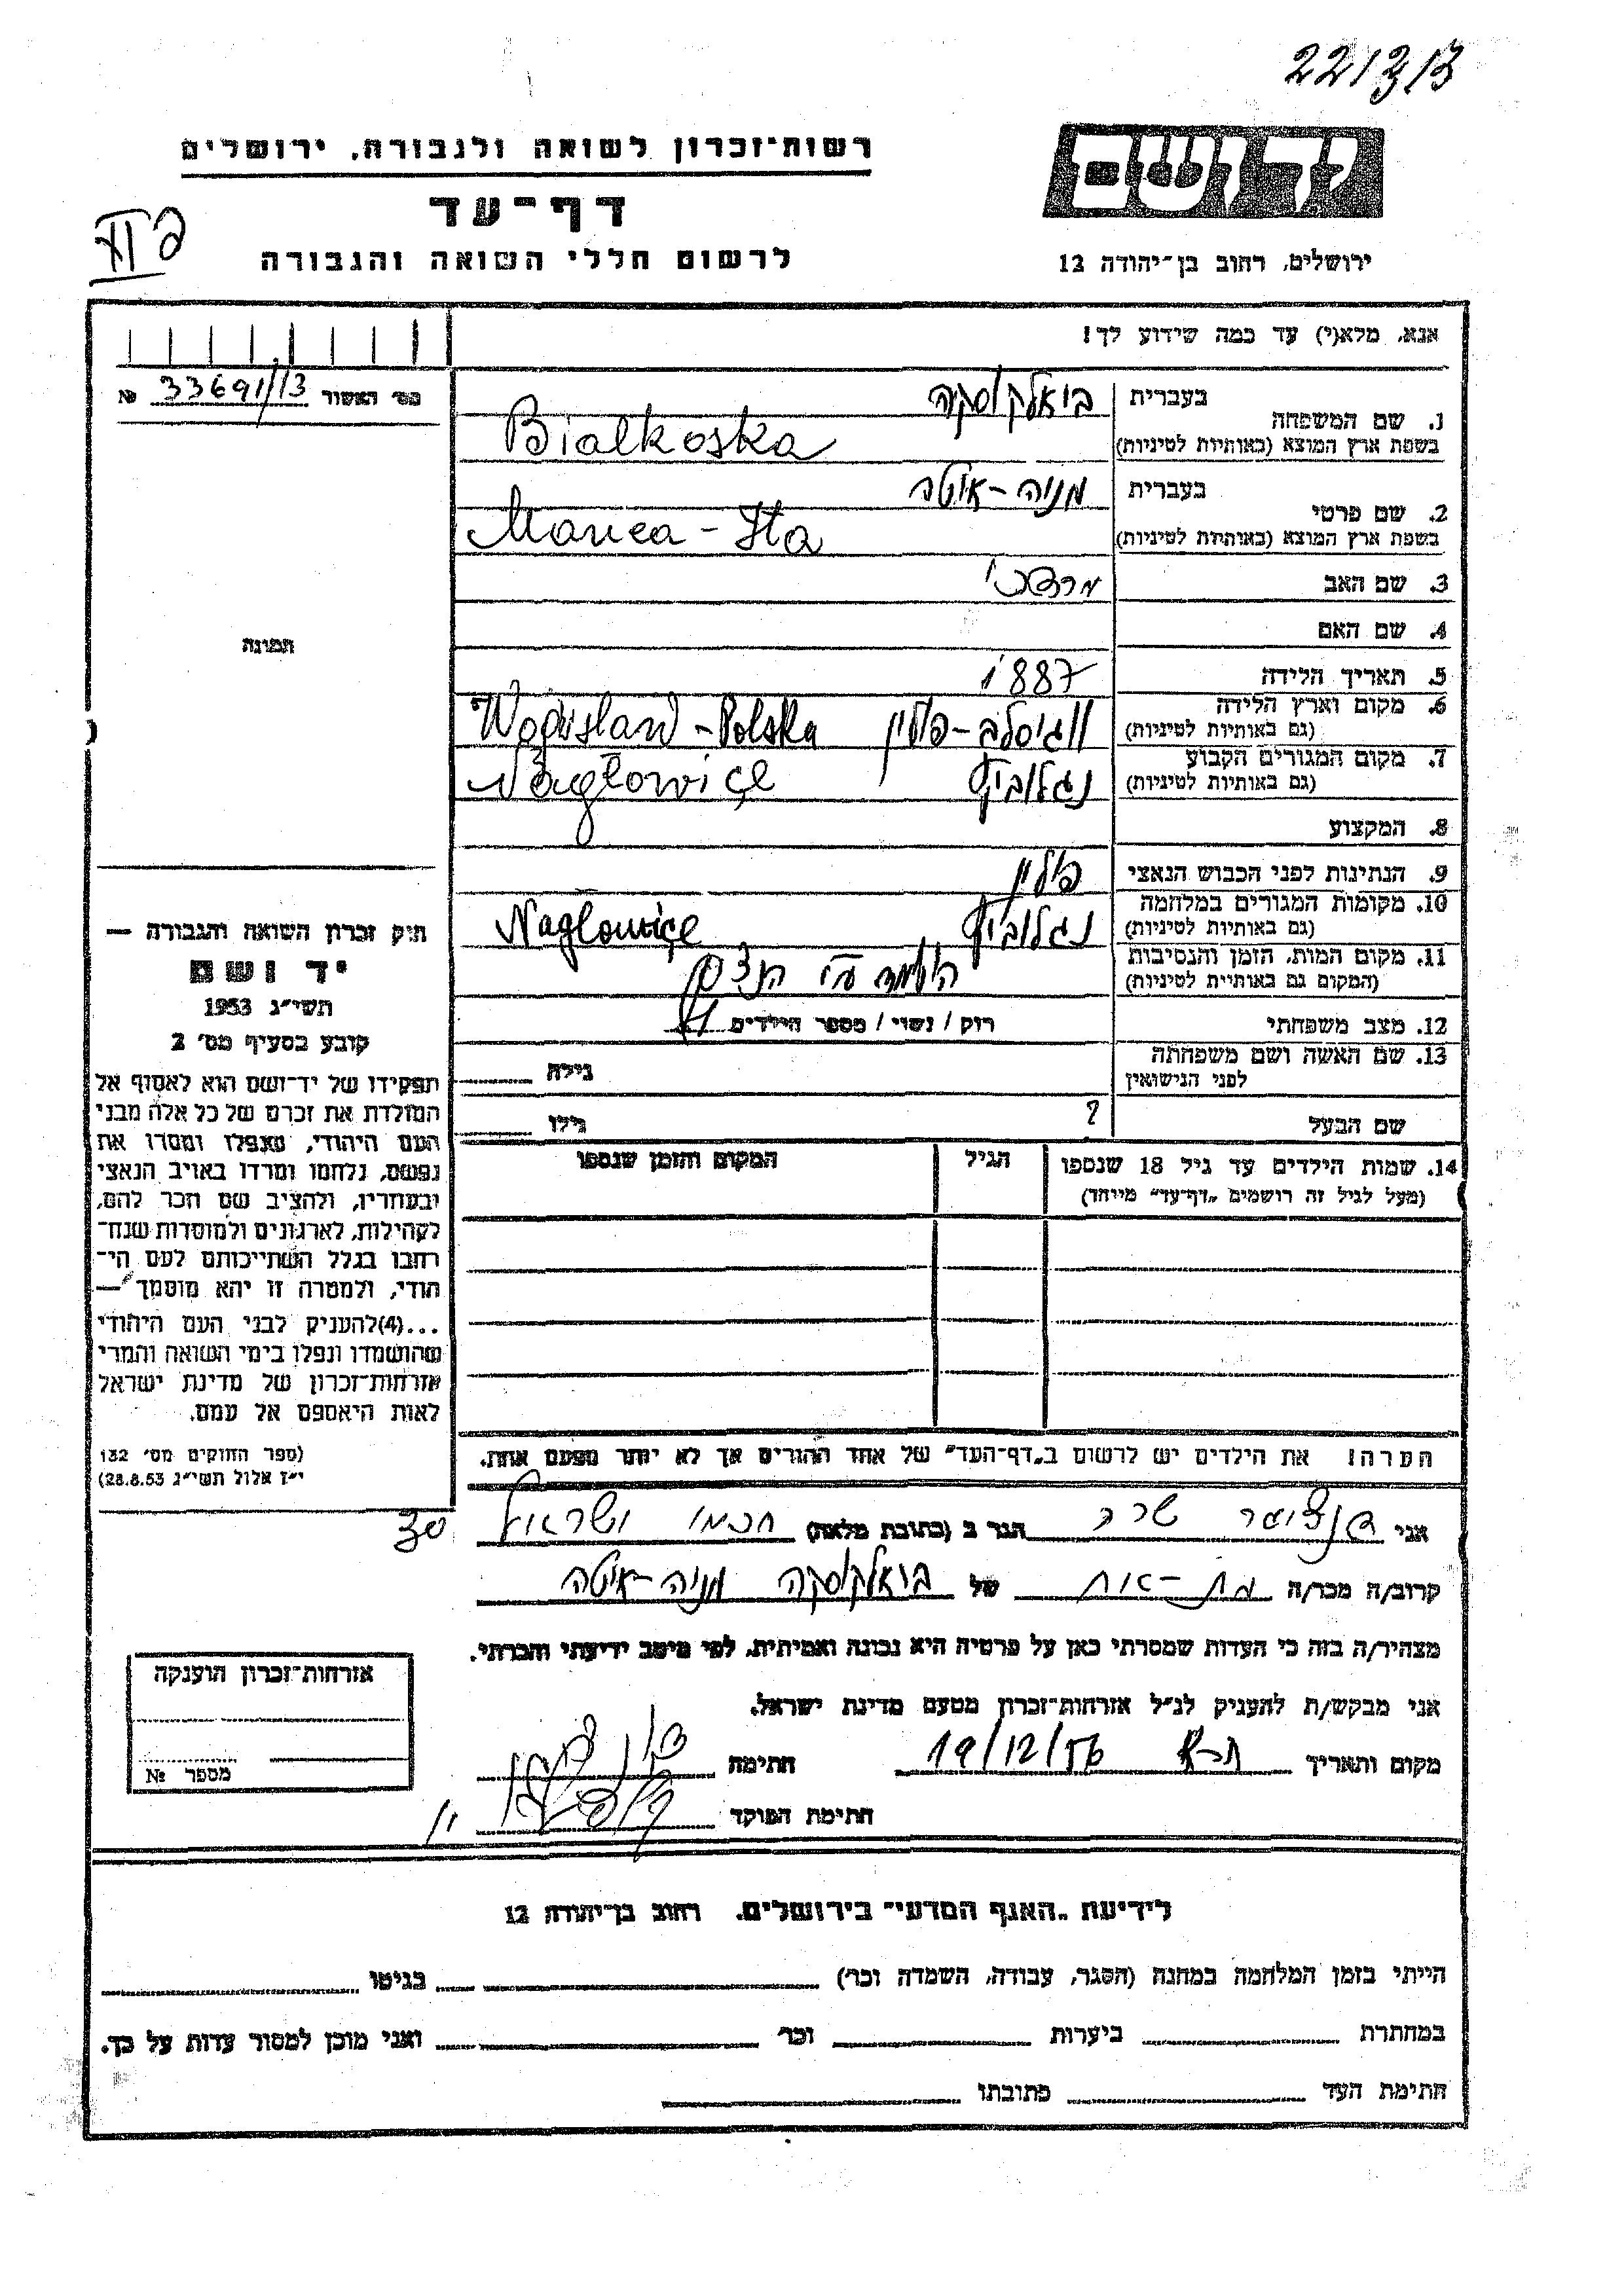 221313
רשות־זכרון לשואה ולגבורה, ירושלים
יד ושם
דף־עד
לרשום חללי השואה והגבורה
ירושלים, רחוב בן־יהודה 12
אנא, מלא(י) עד כמה שידוע לך!
מס׳ האשור № 33691/13
1. שם המשפחה
בעברית
בשפת ארץ המוצא (באותיות לטיניות)
ביאלקוסקה
Bialkoska
2. שם פרטי
בעברית
בשפת ארץ המוצא (באותיות לטיניות)
מניה-איטה
Manea-Ita
3. שם האב מרדכי
4. שם האם
תמונה
5. תאריך הלידה 1887
6. מקום וארץ הלידה
(גם באותיות לטיניות)
ווגיסלב-פולין Wogislaw-Polska
7. מקום המגורים הקבוע
(גם באותיות לטיניות)
נגלוביץ Nagłowiçe
8. המקצוע
9. הנתינות לפני הכבוש הנאצי פולין
10. מקומות המגורים במלחמה
(גם באותיות לטיניות)
נגלוביץ Nagłowiçe
11. מקום המות, הזמן והנסיבות
(המקום גם באותיות לטיניות)
הושמדה ע״י הנצים
12. מצב משפחתי רוק / נשוי / מספר הילדים
13. שם האשה ושם משפחתה
לפני הנישואין
גילה
שם הבעל ? גילו
14. שמות הילדים עד גיל 18 שנספו
(מעל לגיל זה רושמים „דף־עד” מייחד)
הגיל
המקום והזמן שנספו
חוק זכרון השואה והגבורה —
יד ושם
תשי״ג 1953
קובע בסעיף מס׳ 2
תפקידו של יד־ושם הוא לאסוף אל
המולדת את זכרם של כל אלה מבני
העם היהודי, שנפלו ומסרו את
נפשם, נלחמו ומרדו באויב הנאצי
ובעוזריו, ולהציב שם וזכר להם,
לקהילות, לארגונים ולמוסדות שנח־
רבו בגלל השתייכותם לעם הי־
הודי, ולמטרה זו יהא מוסמך —
...(4)להעניק לבני העם היהודי
שהושמדו ונפלו בימי השואה והמרי
אזרחות־זכרון של מדינת ישראל
לאות היאספם אל עמם.
(ספר החוקים מס׳ 132
י״ז אלול תשי״ג 28.8.53)
הערה! את הילדים יש לרשום ב„דף־העד” של אחד ההורים אך לא יותר מפעם אחת.
אני שרה הגר ב (כתובת מלאה) חכמי ישראל 30
קרוב/ה מכר/ה בת-אח של ביאלקוסקה מניה-איטה
מצהיר/ה בזה כי העדות שמסרתי כאן על פרטיה היא נכונה ואמיתית, לפי מיטב ידיעתי והכרתי.
אני מבקש/ת להעניק לנ״ל אזרחות־זכרון מטעם מדינת ישראל.
מקום ותאריך ת-א 19/12/56 חתימה
חתימת הפוקד
אזרחות־זכרון הוענקה
מספר №
לידיעת „האגף המדעי” בירושלים, רחוב בן־יהודה 12
הייתי בזמן המלחמה במחנה (הסגר, עבודה, השמדה וכו׳) בגיטו
במחתרת ביערות וכו׳ ואני מוכן למסור עדות על כך.
חתימת העד כתובתו